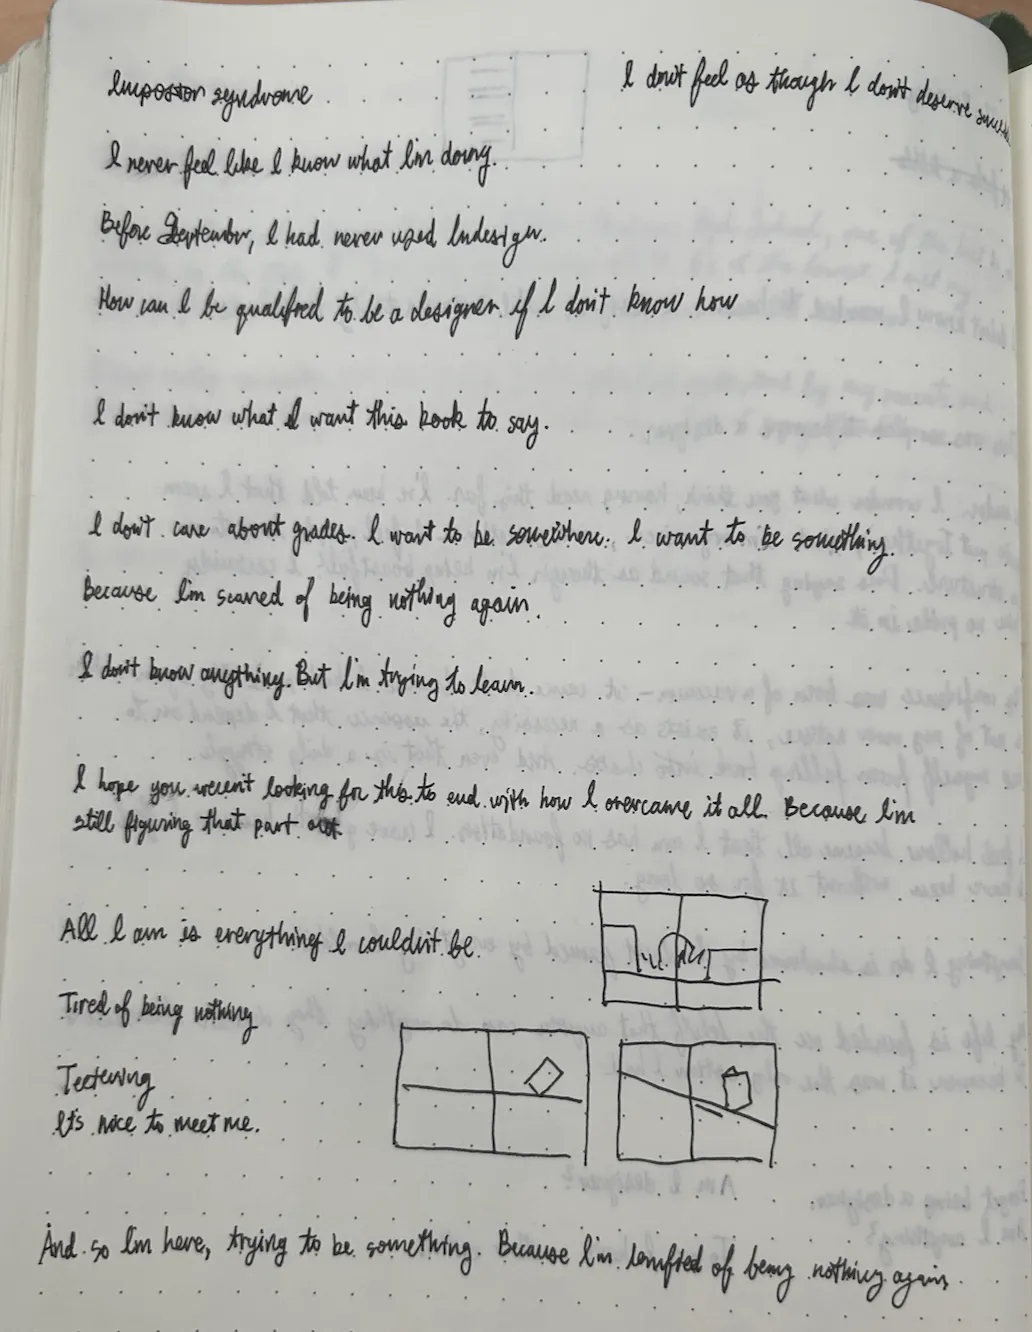 Impostor syndrome
I don't feel as though I don't deserve success
I never feel like I know what I'm doing.
Before September, I had never used Indesign.
How can I be qualified to be a designer if I don't know how
I don't know what I want this book to say.
I don't care about grades. I want to be somewhere. I want to be something.
Because I'm scared of being nothing again.
I don't know anything. But I'm trying to learn.
I hope you weren't looking for this to end with how I overcame it all. Because I'm
still figuring that part out.
All I am is everything I couldn't be.
Tired of being nothing
Teetering
It's nice to meet me.
And so I'm here, trying to be something. Because I'm terrified of being nothing again.